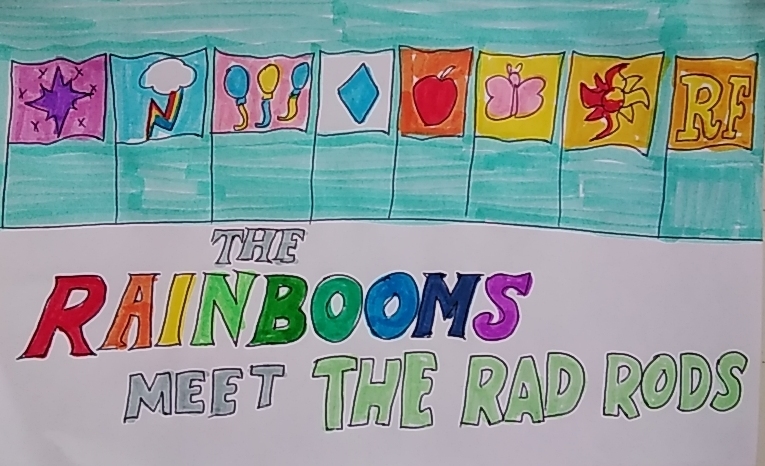 RF
THE
RAINBOOMS
MEET THE RAD RODS